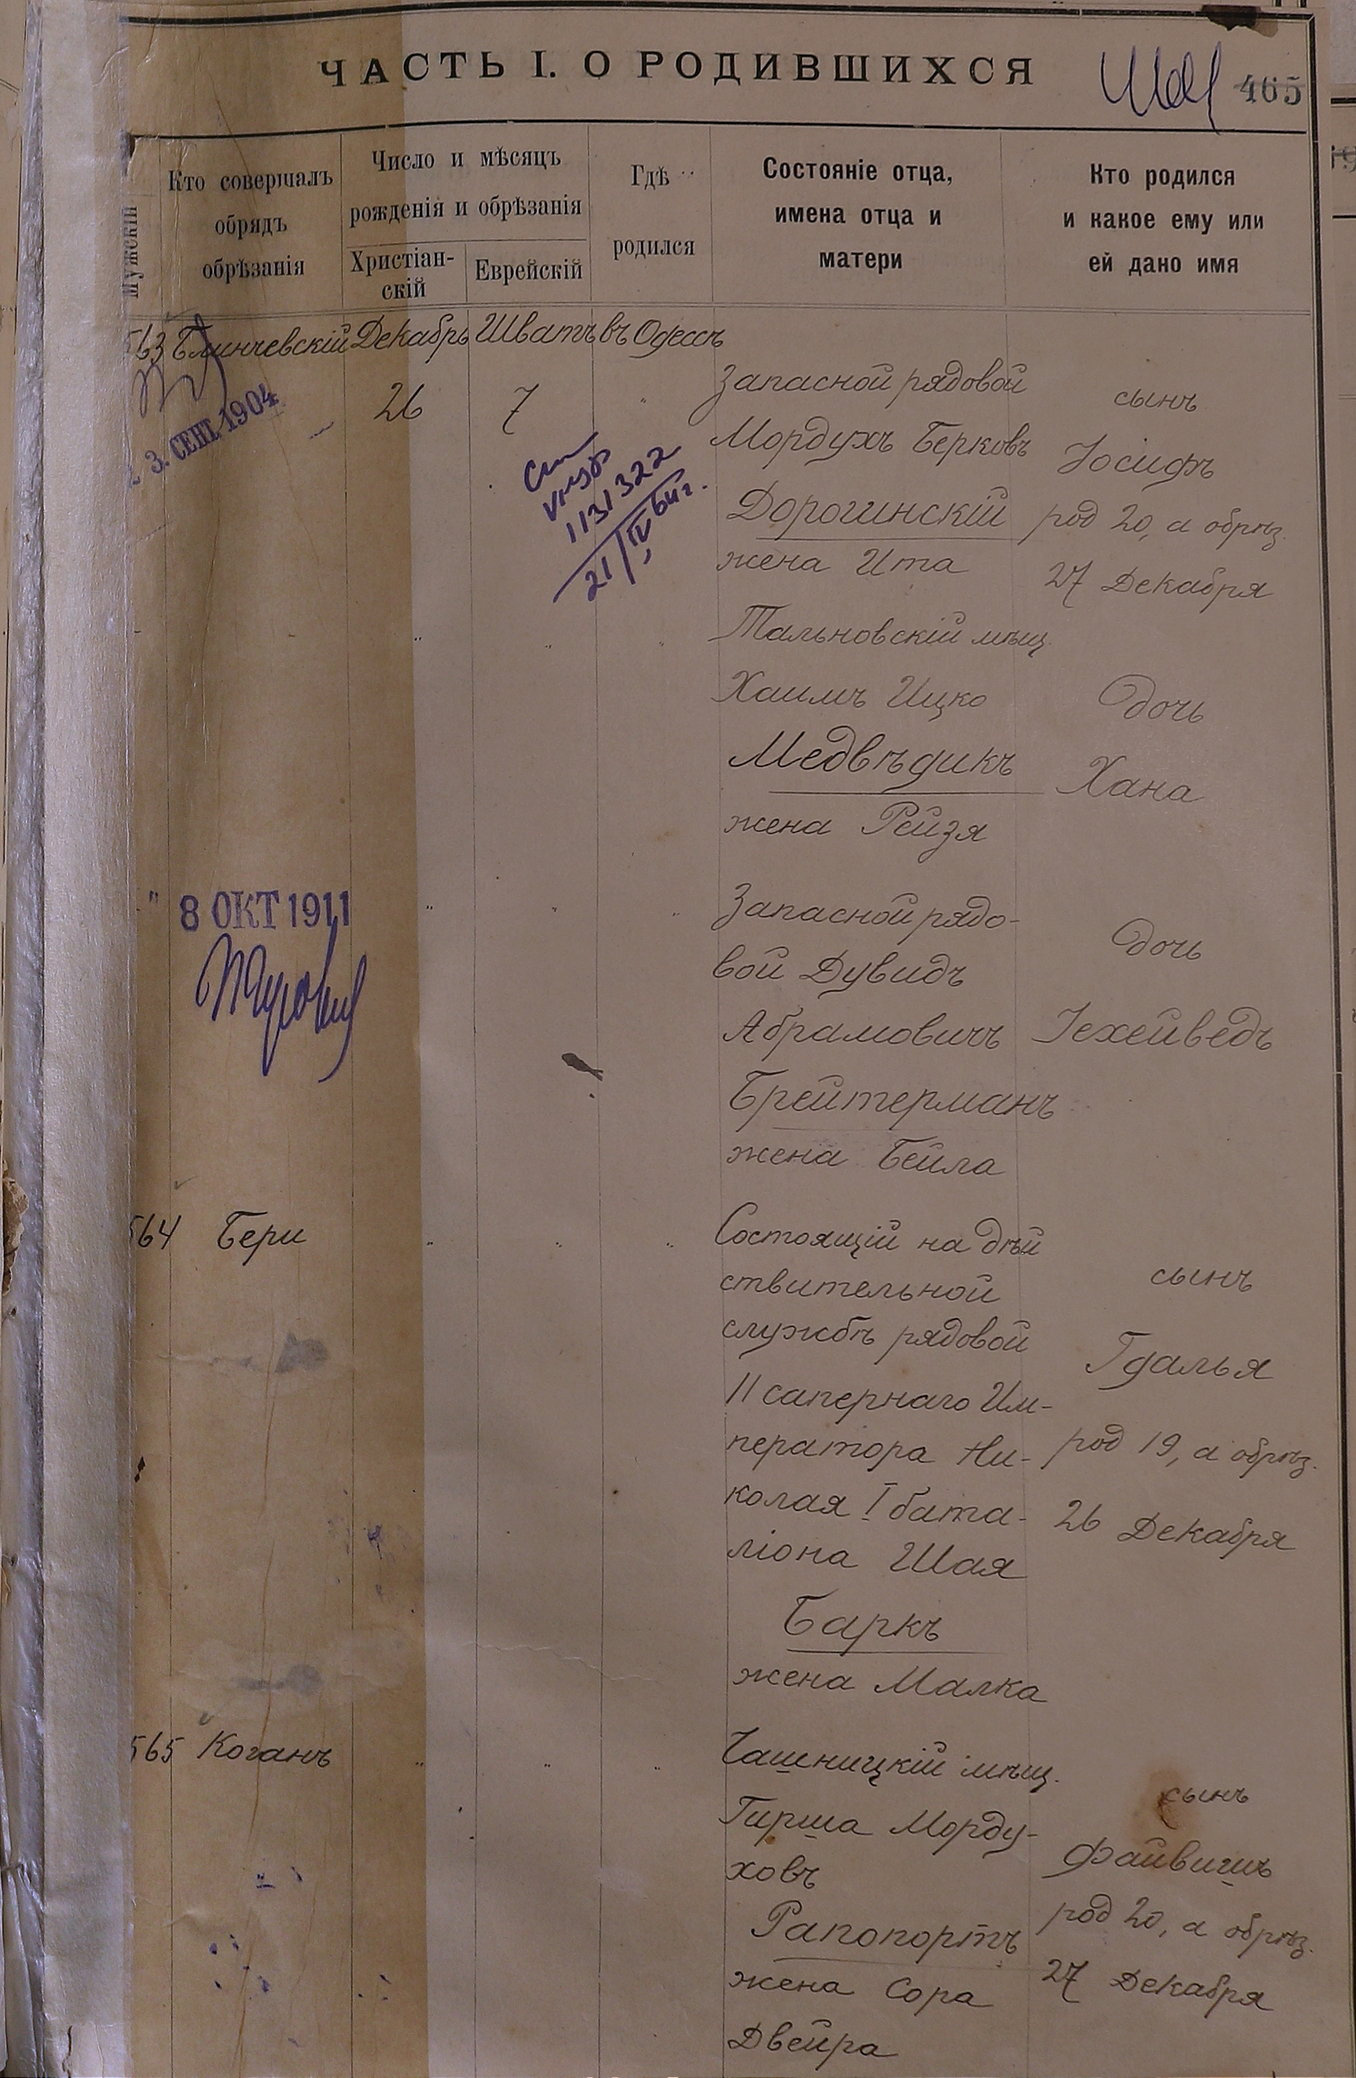 ЧАСТЬ I. О РОДИВШИХСЯ
465
Мужскій
Кто совершалъ
обрядъ
обрѣзанія
Число и мѣсяцъ
рожденія и обрѣзанія
Христіан-
скій
Еврейскій
Гдѣ
родился
Состояніе отца,
имена отца и
матери
Кто родился
и какое ему или
ей дано имя
563 Блинчевскій Декабрь Шватъ въ Одессѣ
26 7 "
3. СЕНТ. 1904
1131322
21/IV 64 г.
Запасной рядовой
Мордухъ Берковъ
Дорогинскій
жена Ита
сынъ
Іосифъ
род 20, а обрѣз.
27 Декабря
" " "
Тальновскій мѣщ.
Хаимъ Ицко
Медвѣдикъ
жена Рейзя
дочь
Хана
" 8 ОКТ 1911
" " "
Запасной рядо-
вой Дувидъ
Абрамовичъ
Брейтерманъ
жена Бейла
дочь
Іехейведъ
564 Бери " " "
Состоящій на дѣй
ствительной
службѣ рядовой
11 сапернаго Им-
ператора Ни-
колая I бата-
ліона Шая
Баркъ
жена Малка
сынъ
Гдалья
род 19, а обрѣз.
26 Декабря
565 Коганъ " " "
Чашницкій мѣщ.
Гирша Морду-
ховъ
Рапопортъ
жена Сора
Двейра
сынъ
Файвишъ
род 20, а обрѣз.
27 Декабря